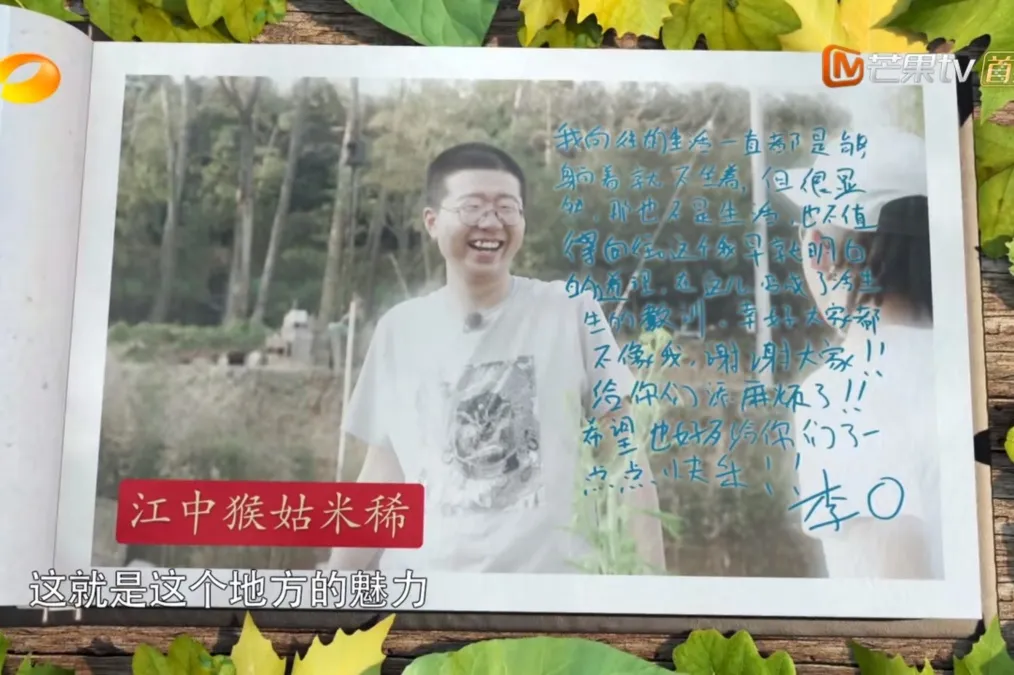 芒果tv
首
我向往的生活一直都是能
躺着就不坐着,但很显
然,那也不是生活,也不值
得向往。这个我早就明白
的道理,在这儿成了活生
生的教训,幸好大家都
不像我,谢谢大家!!
给你们添麻烦了!!
希望也好歹给你们了一
点点快乐!!
李
江中猴姑米稀
这就是这个地方的魅力